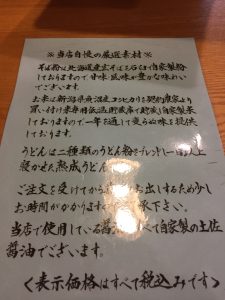 ※当店自慢の厳選素材※
そば粉は北海道産玄そばを石うす自家製粉
しておりますので甘味、風味が豊かな味わい
でございます。
お米は新潟県魚沼産コシヒカリを契約農家より
買い付け米専用低温貯蔵庫で貯蔵し自家製
しておりますので一年を通して変らぬ味を提供
しております。
うどんは二種類のうどん粉をブレンドし一日以上
寝かせた熟成うどん
ご注文を受けてから お出しするため少し
お時間がかかります 承下さい。
当店で使用している醤油 べて自家製の土佐
醤油でございます。
〈表示価格はすべて税込みです〉